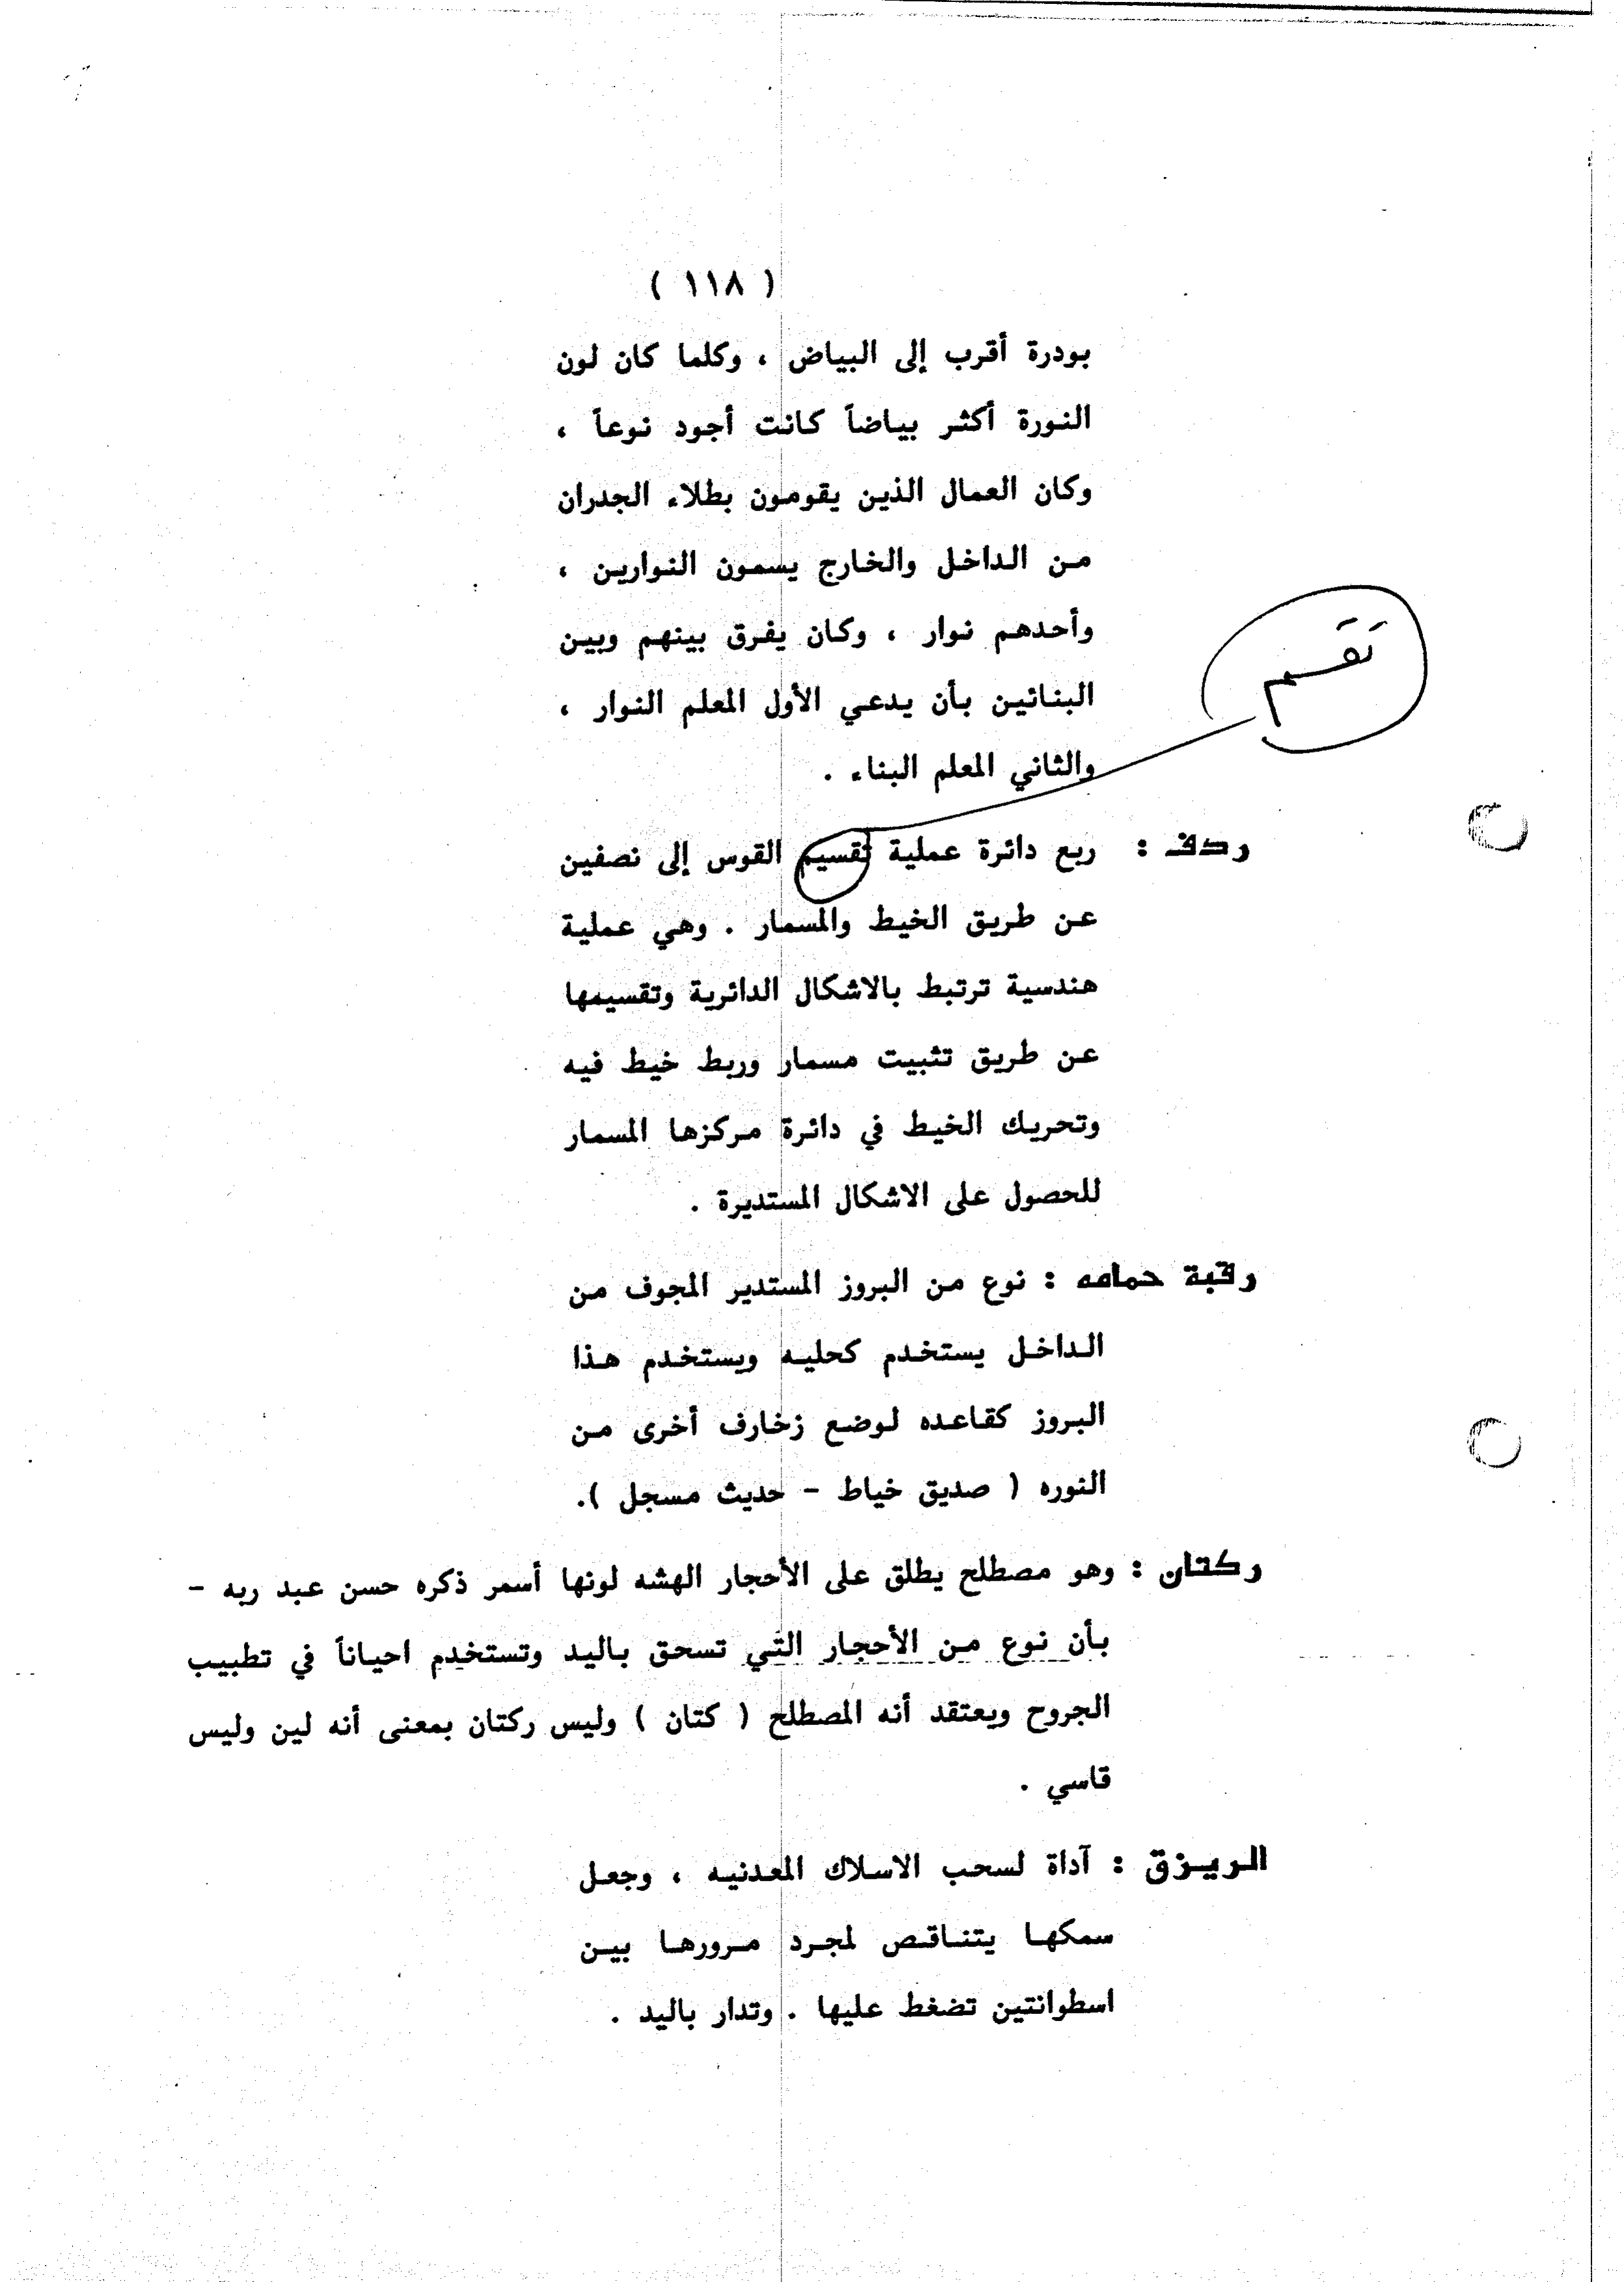 ( ١١٨ )
بودرة أقرب إلى البياض ، وكلما كان لون
النورة أكثر بياضاً كانت أجود نوعاً ،
وكان العمال الذين يقومون بطلاء الجدران
من الداخل والخارج يسمون النوارين ،
وأحدهم نوار ، وكان يفرق بينهم وبين
البنائين بأن يدعي الأول المعلم النوار ،
والثاني المعلم البناء .
ردف : ربع دائرة عملية تقسيم القوس إلى نصفين
عن طريق الخيط والمسمار . وهي عملية
هندسية ترتبط بالاشكال الدائرية وتقسيمها
عن طريق تثبيت مسمار وربط خيط فيه
وتحريك الخيط في دائرة مركزها المسمار
للحصول على الاشكال المستديرة .
رقبة حمامه : نوع من البروز المستدير المجوف من
الداخل يستخدم كحليه ويستخدم هذا
البروز كقاعده لوضع زخارف أخرى من
النوره ( صديق خياط - حديث مسجل ).
ركتان : وهو مصطلح يطلق على الأحجار الهشه لونها أسمر ذكره حسن عبد ربه -
بأن نوع من الأحجار التي تسحق باليد وتستخدم احياناً في تطبيب
الجروح ويعتقد أنه المصطلح ( كتان ) وليس ركتان بمعنى أنه لين وليس
قاسي .
الريزق : آداة لسحب الاسلاك المعدنيه ، وجعل
سمكها يتناقص لمجرد مرورها بين
اسطوانتين تضغط عليها . وتدار باليد .